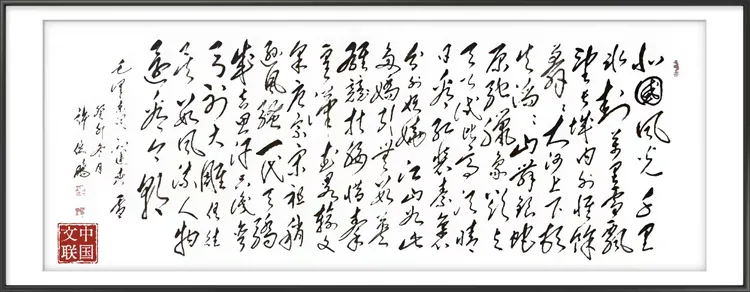 北國风光千里
冰封萬里雪飘
望长城内外惟馀
莽莽大河上下顿
失滔滔山舞银蛇
原驰蜡象欲与
天公试比高须晴
日看红装素裹
分外妖娆江山如此
多娇引无数英
雄竞折腰惜秦
皇汉武略输文
采唐宗宋祖稍
逊风骚一代天骄
成吉思汗只识弯
弓射大雕俱往
矣数风流人物
还看今朝
毛泽东词沁园春雪
癸卯冬月
中国
文联